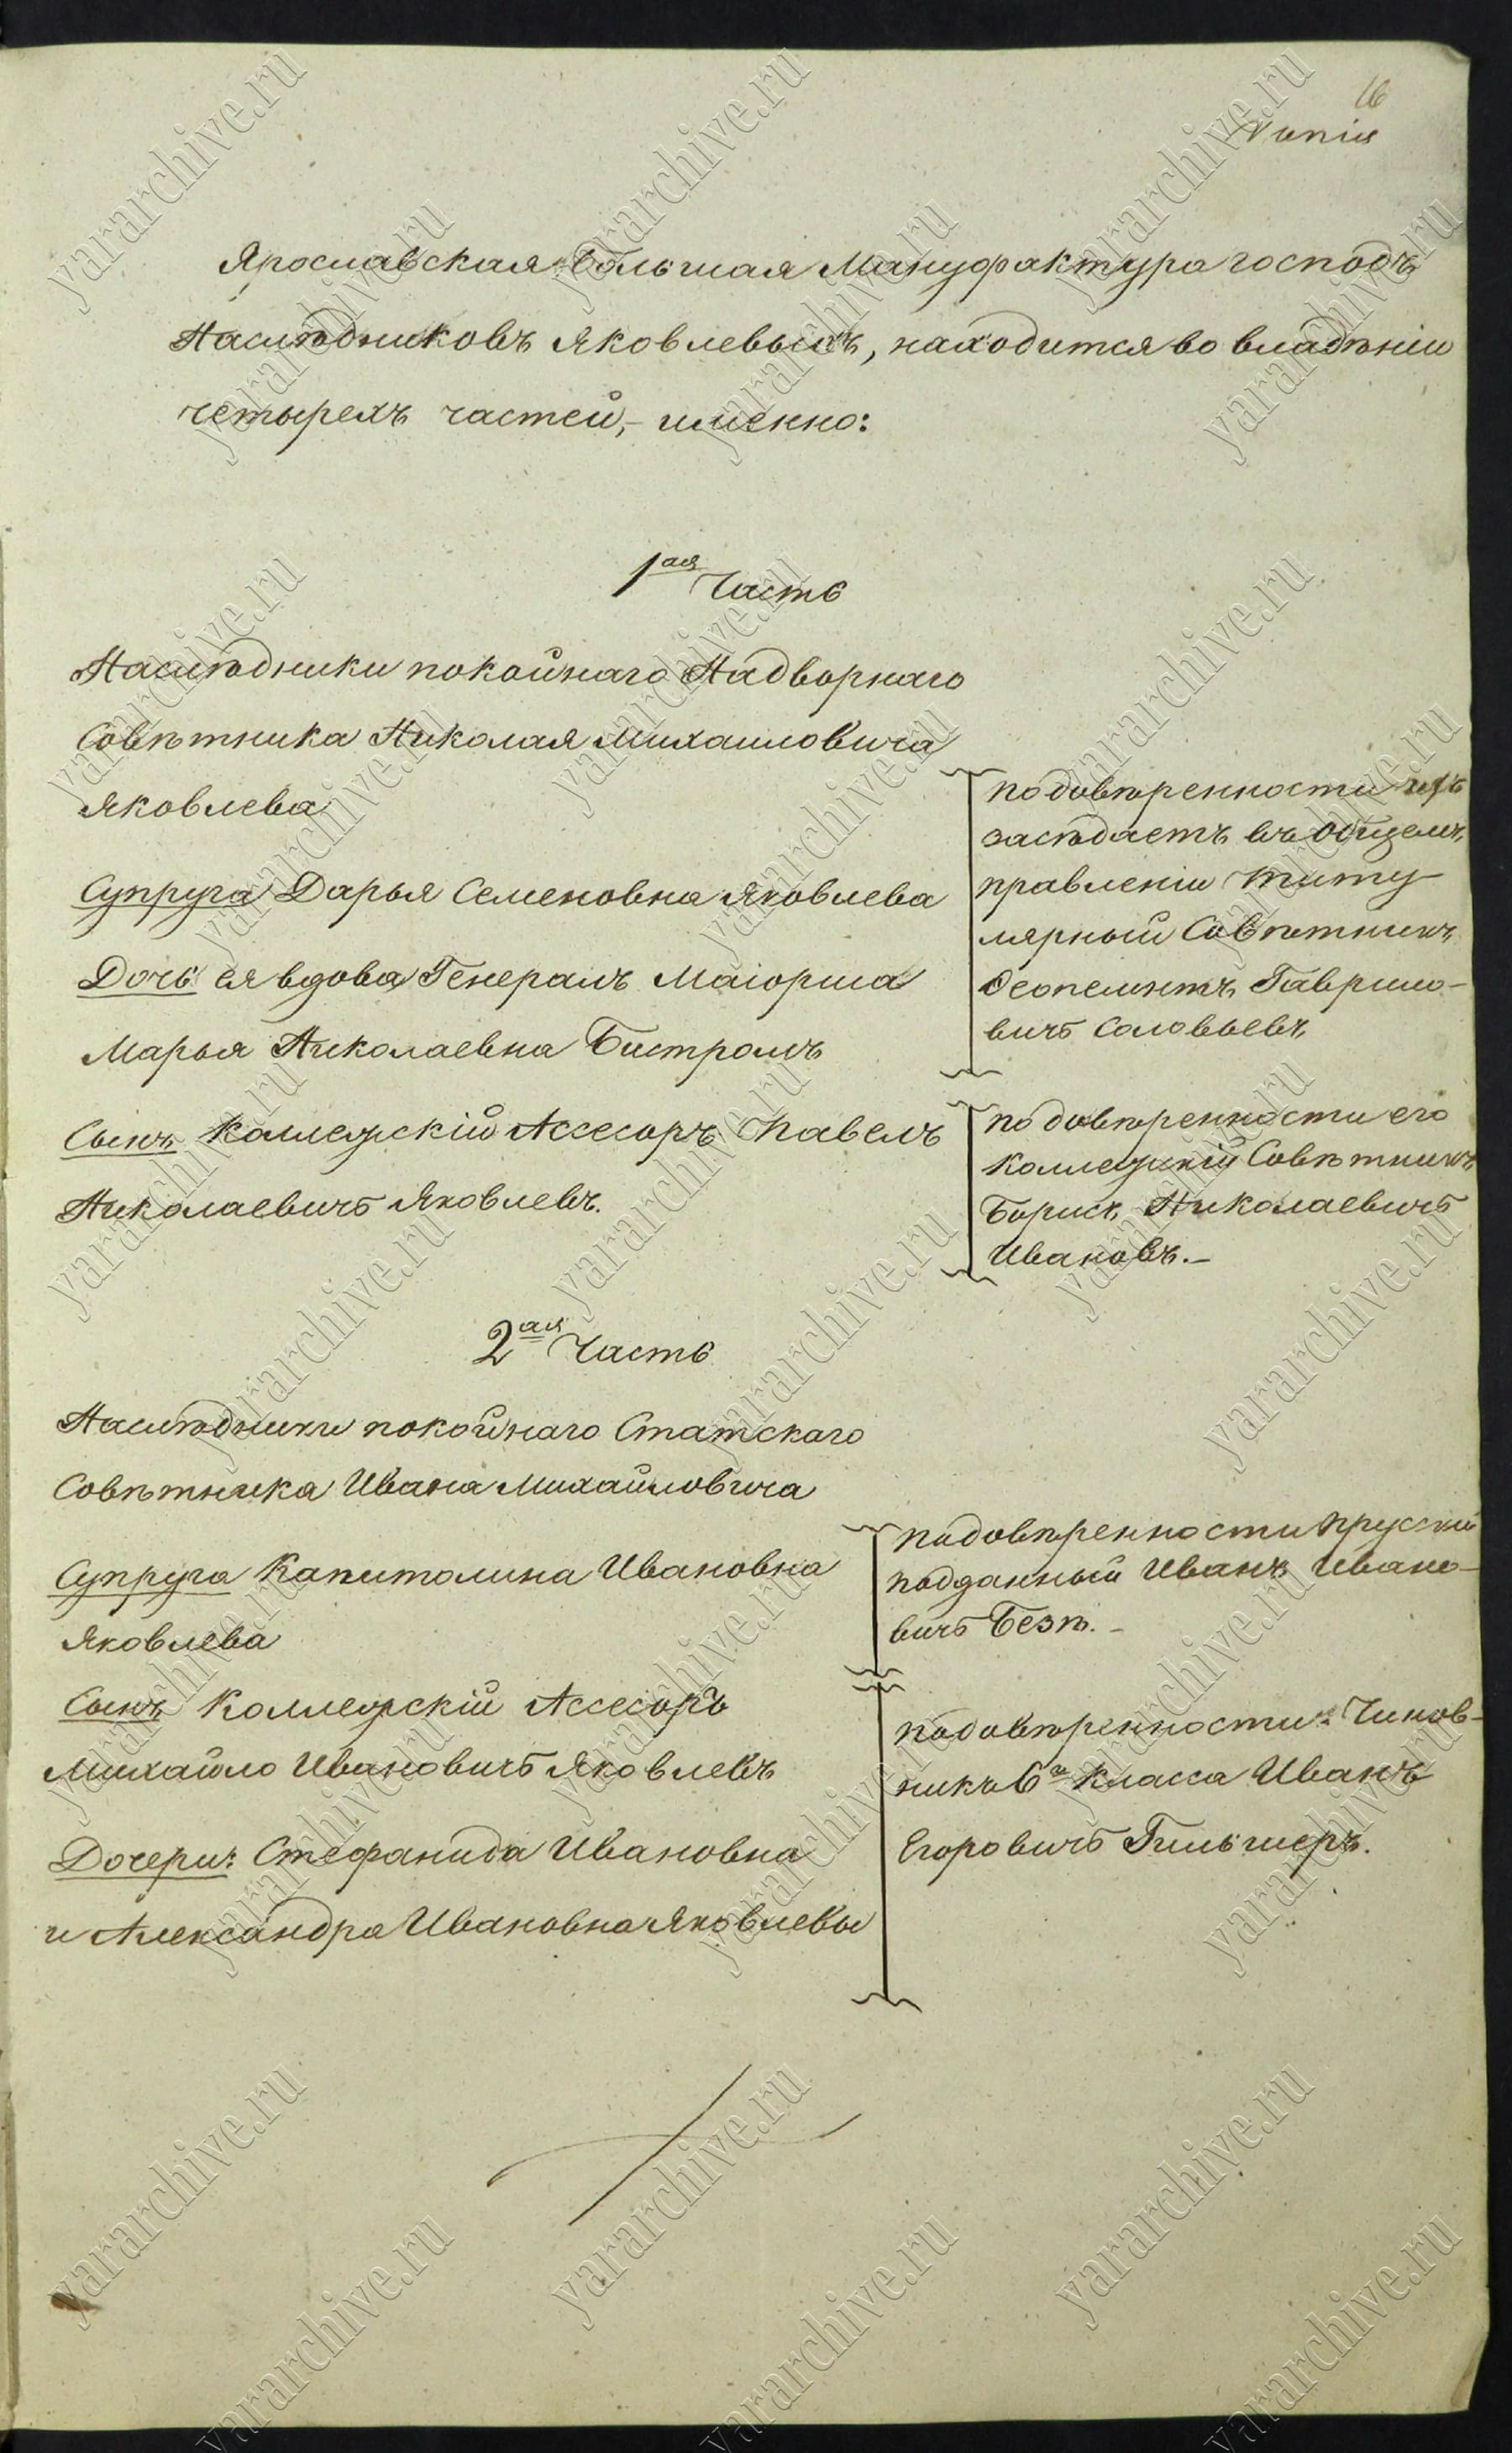 16
Копія
Ярославская большая Мануфактура господъ
Наслѣдниковъ Яковлевыхъ, находится во владѣніи
четырехъ частей,- именно:
1ая Часть
Наслѣдники покойнаго Надворнаго
Совѣтника Николая Михаиловича
Яковлева
Супруга Дарья Семеновна Яковлева
Дочь ея вдова Генералъ Маіорша
Марья Николаевна Бистромъ
по довѣренности ихъ
засѣдаетъ въ общемъ
правленіи Титу-
лярный Совѣтникъ
Феопемптъ Гаврило-
вичъ Соловьевъ
Сынъ Коллежскій Ассесоръ Павелъ
Николаевичъ Яковлевъ.
по довѣренности его
Коллежскій Совѣтникъ
Борисъ Николаевичъ
Ивановъ.-
2ая Часть
Наслѣдники покойнаго Статскаго
Совѣтника Ивана Михайловича
Супруга Капитолина Ивановна
Яковлева
по довѣренности Прусскій
подданный Иванъ Ивано-
вичъ Безѣ.-
Сынъ Коллежскій Ассесоръ
Михайло Ивановичъ Яковлевъ
Дочери: Стефанида Ивановна
и Александра Ивановна Яковлевы
по довѣренности: Чинов-
никъ 6го класса Иванъ
Егоровичъ Гильшеръ.
yararchive.ru